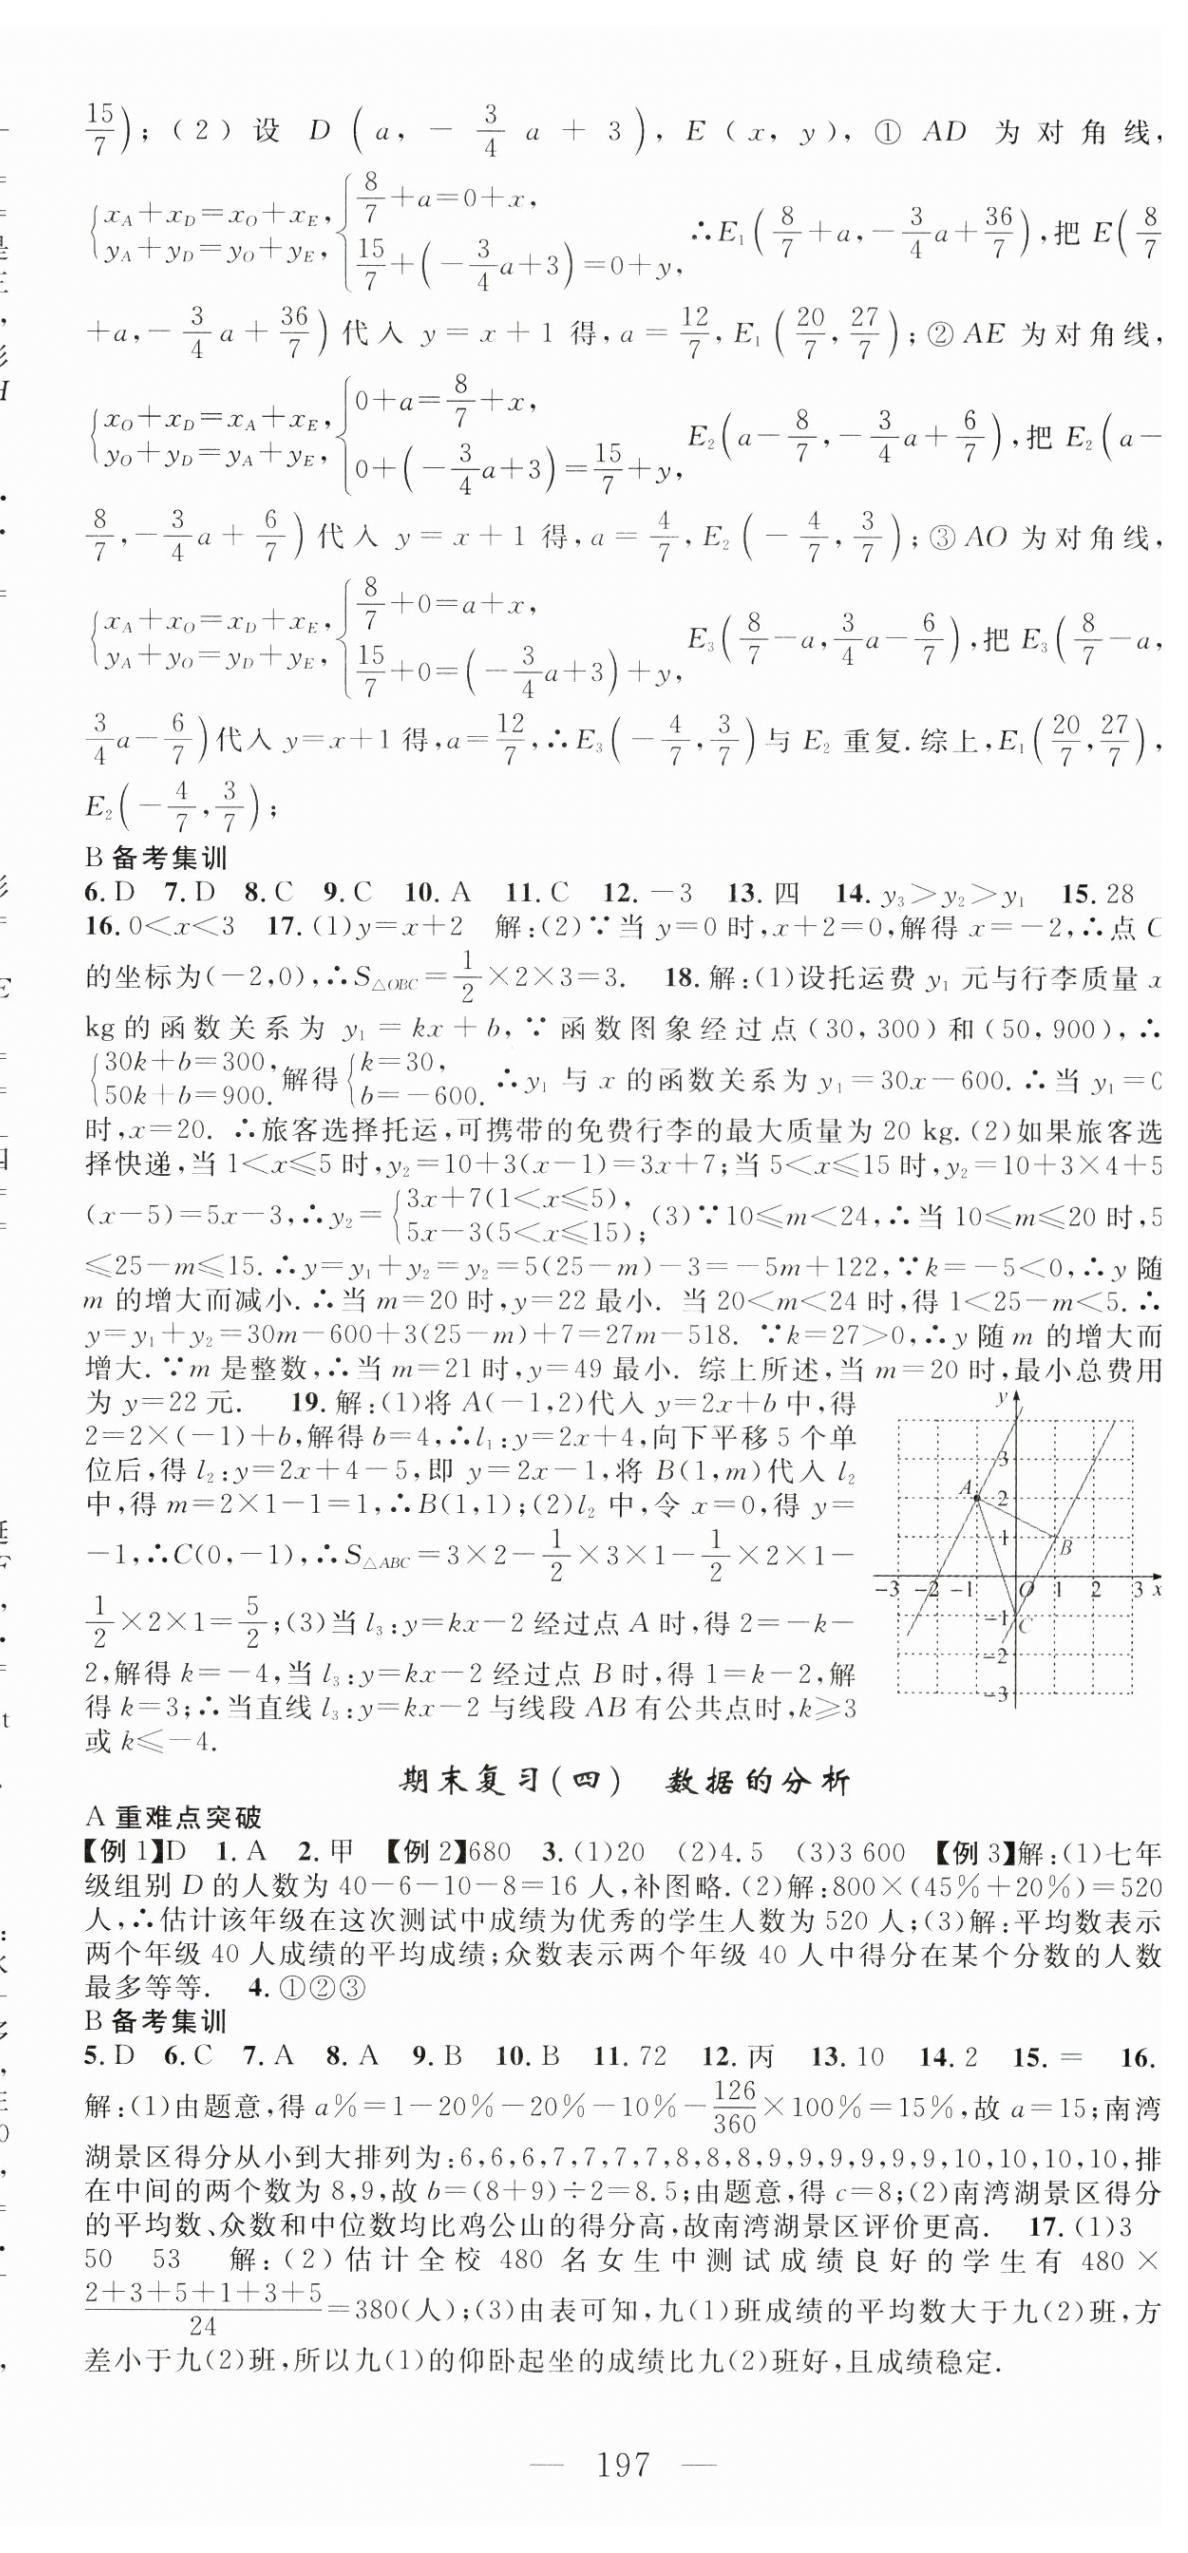 15/7);(2)设 D(a,-3/4a+3),E(x,y),① AD 为对角线,
{xA+xD=xO+xE, yA+yD=yO+yE, {8/7+a=0+x, 15/7+(-3/4a+3)=0+y, ∴E₁(8/7+a,-3/4a+36/7),把 E(8/7
+a,-3/4a+36/7)代入 y=x+1 得,a=12/7,E₁(20/7,27/7);②AE 为对角线,
{xO+xD=xA+xE, yO+yD=yA+yE, {0+a=8/7+x, 0+(-3/4a+3)=15/7+y, E₂(a-8/7,-3/4a+6/7),把 E₂(a-
8/7,-3/4a+6/7)代入 y=x+1 得,a=4/7,E₂(-4/7,3/7);③AO 为对角线,
{xA+xO=xD+xE, yA+yO=yD+yE, {8/7+0=a+x, 15/7+0=(-3/4a+3)+y, E₃(8/7-a,3/4a-6/7),把 E₃(8/7-a,
3/4a-6/7)代入 y=x+1 得,a=12/7,∴E₃(-4/7,3/7)与 E₂ 重复.综上,E₁(20/7,27/7),
E₂(-4/7,3/7);
B 备考集训
6.D 7.D 8.C 9.C 10.A 11.C 12.-3 13.四 14.y₃>y₂>y₁ 15.28
16.0<x<3 17.(1)y=x+2 解:(2)∵当 y=0 时,x+2=0,解得 x=-2,∴点 C
的坐标为(-2,0),∴S△OBC=1/2×2×3=3. 18.解:(1)设托运费 y₁ 元与行李质量 x
kg 的函数关系为 y₁=kx+b,∵函数图象经过点(30,300)和(50,900),∴
{30k+b=300, 50k+b=900. 解得{k=30, b=-600. ∴y₁ 与 x 的函数关系为 y₁=30x-600.∴当 y₁=0
时,x=20. ∴旅客选择托运,可携带的免费行李的最大质量为 20 kg.(2)如果旅客选
择快递,当 1<x≤5 时,y₂=10+3(x-1)=3x+7;当 5<x≤15 时,y₂=10+3×4+5
(x-5)=5x-3,∴y₂={3x+7(1<x≤5), 5x-3(5<x≤15); (3)∵10≤m<24,∴当 10≤m≤20 时,5
≤25-m≤15.∴y=y₁+y₂=y₂=5(25-m)-3=-5m+122,∵k=-5<0,∴y 随
m 的增大而减小.∴当 m=20 时,y=22 最小. 当 20<m<24 时,得 1<25-m<5.∴
y=y₁+y₂=30m-600+3(25-m)+7=27m-518. ∵k=27>0,∴y 随 m 的增大而
增大.∵m 是整数,∴当 m=21 时,y=49 最小. 综上所述,当 m=20 时,最小总费用
为 y=22 元. 19.解:(1)将 A(-1,2)代入 y=2x+b 中,得
2=2×(-1)+b,解得 b=4,∴l₁:y=2x+4,向下平移 5 个单
位后,得 l₂:y=2x+4-5,即 y=2x-1,将 B(1,m)代入 l₂
中,得 m=2×1-1=1,∴B(1,1);(2)l₂ 中,令 x=0,得 y=
-1,∴C(0,-1),∴S△ABC=3×2-1/2×3×1-1/2×2×1-
1/2×2×1=5/2;(3)当 l₃:y=kx-2 经过点 A 时,得 2=-k-
2,解得 k=-4,当 l₃:y=kx-2 经过点 B 时,得 1=k-2,解
得 k=3;∴当直线 l₃:y=kx-2 与线段 AB 有公共点时,k≥3
或 k≤-4.
y
3
A 2
1 B
-3 -2 -1 O 1 2 3 x
-1 C
-2
-3
期末复习(四) 数据的分析
A 重难点突破
【例 1】D 1.A 2.甲 【例 2】680 3.(1)20 (2)4.5 (3)3 600 【例 3】解:(1)七年
级组别 D 的人数为 40-6-10-8=16 人,补图略.(2)解:800×(45%+20%)=520
人,∴估计该年级在这次测试中成绩为优秀的学生人数为 520 人;(3)解:平均数表示
两个年级 40 人成绩的平均成绩;众数表示两个年级 40 人中得分在某个分数的人数
最多等等. 4.①②③
B 备考集训
5.D 6.C 7.A 8.A 9.B 10.B 11.72 12.丙 13.10 14.2 15.= 16.
解:(1)由题意,得 a%=1-20%-20%-10%-126/360×100%=15%,故 a=15;南湾
湖景区得分从小到大排列为:6,6,6,7,7,7,7,8,8,8,9,9,9,9,9,9,10,10,10,10,排
在中间的两个数为 8,9,故 b=(8+9)÷2=8.5;由题意,得 c=8;(2)南湾湖景区得分
的平均数、众数和中位数均比鸡公山的得分高,故南湾湖景区评价更高. 17.(1)3
50 53 解:(2)估计全校 480 名女生中测试成绩良好的学生有 480×
2+3+5+1+3+5/24=380(人);(3)由表可知,九(1)班成绩的平均数大于九(2)班,方
差小于九(2)班,所以九(1)的仰卧起坐的成绩比九(2)班好,且成绩稳定.
— 197 —